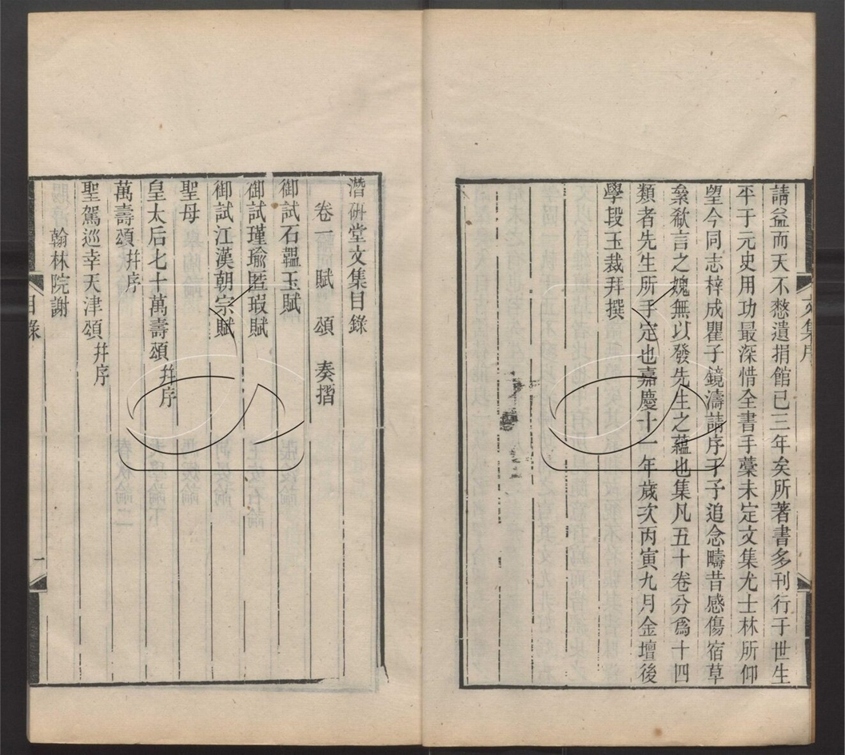 請益而天不憗遺捐館已三年矣所著書多刊行于世生
平于元史用功最深惜全書手藁未定文集尤士林所仰
望今同志梓成瞿子鏡濤請序于予追念疇昔感傷宿草
粂欷言之媿無以發先生之蘊也集凡五十卷分爲十四
類者先生所手定也嘉慶十一年歲次丙寅九月金壇後
學段玉裁拜撰
潛硏堂文集目錄
卷一 賦 頌 奏摺
御試石韞玉賦
御試瑾瑜匿瑕賦
御試江漢朝宗賦
聖母
皇太后七十萬壽頌幷序
萬壽頌幷序
聖駕巡幸天津頌幷序
翰林院謝
目錄
一